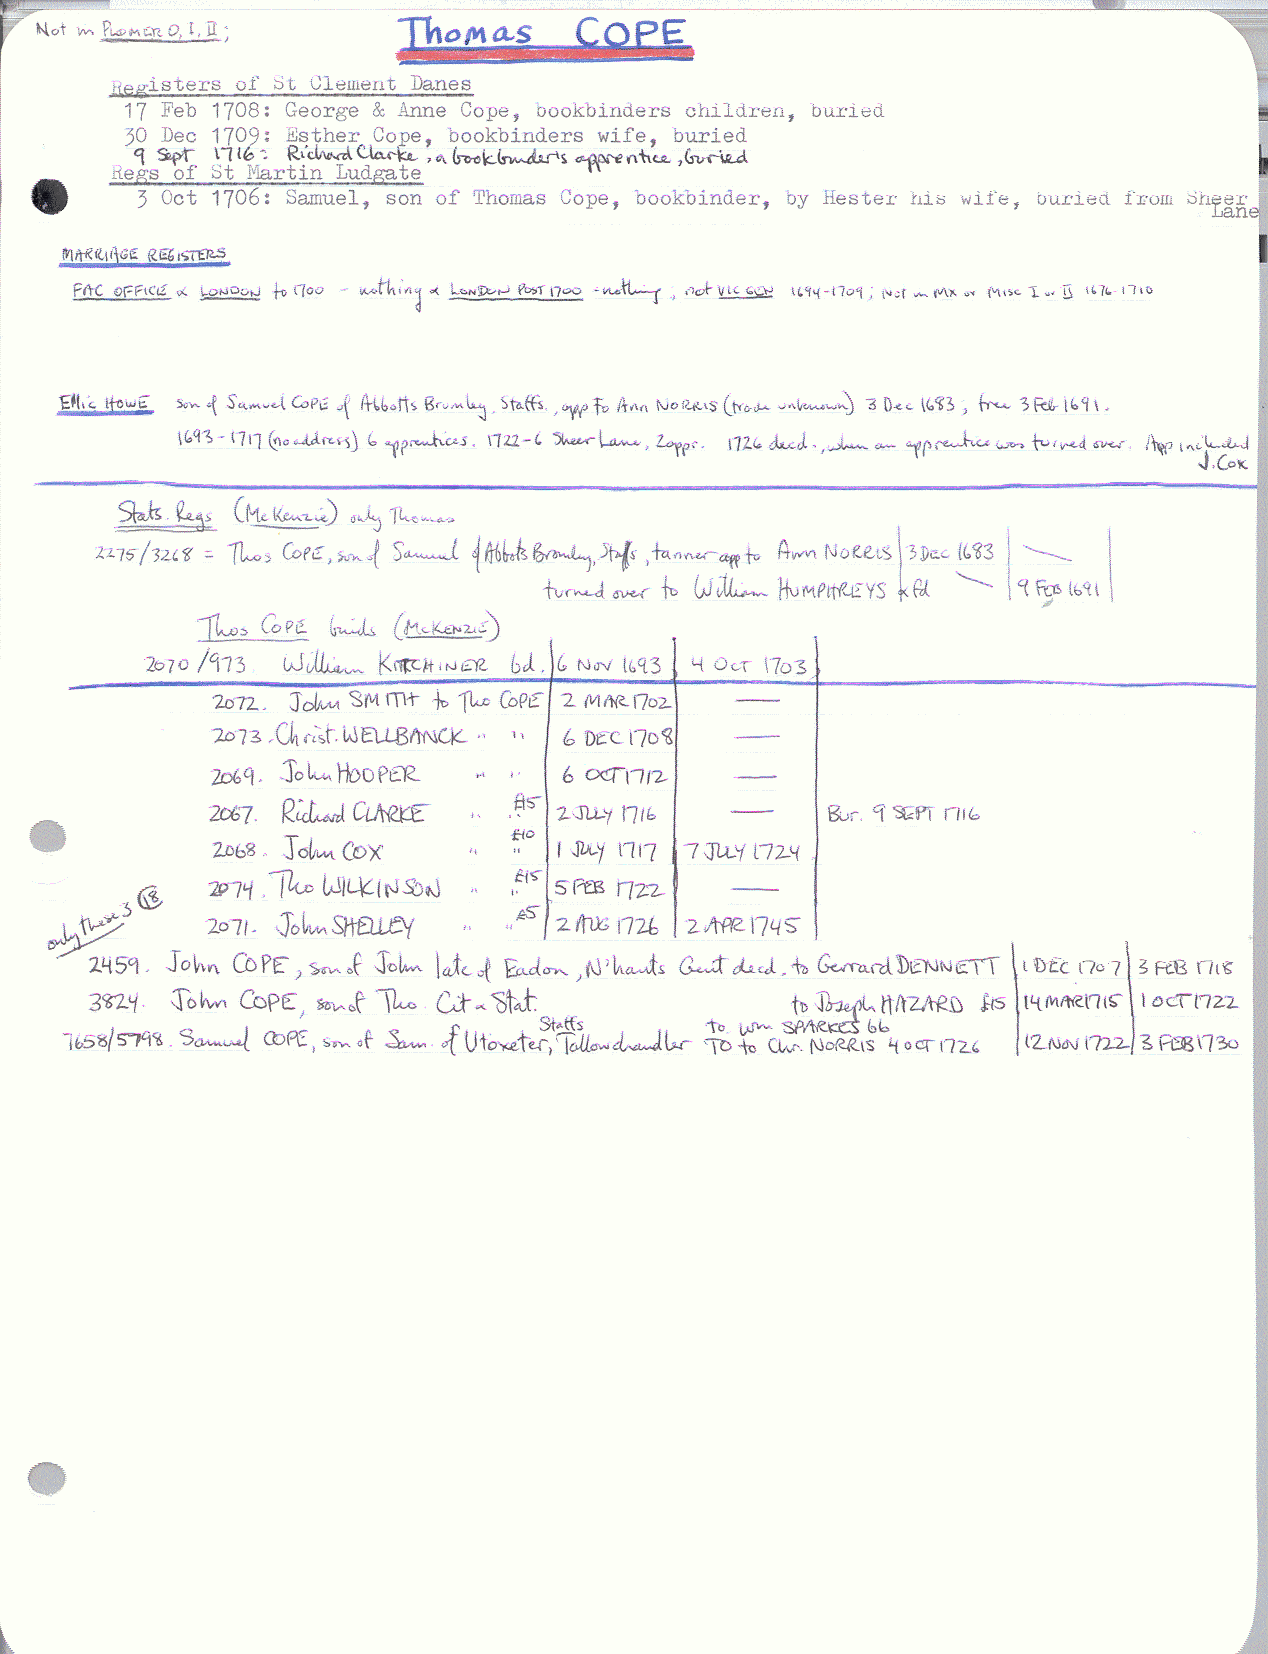 Not in PLOMER O, I, II;
Thomas COPE
Registers of St Clement Danes
17 Feb 1708: George & Anne Cope, bookbinders children, buried
30 Dec 1709: Esther Cope, bookbinders wife, buried
9 Sept 1716: Richard Clarke, a bookbinder's apprentice, buried
Regs of St Martin Ludgate
3 Oct 1706: Samuel, son of Thomas Cope, bookbinder, by Hester his wife, buried from Sheer
Lane
MARRIAGE REGISTERS
FAC OFFICE & LONDON to 1700 - nothing & LONDON POST 1700 - nothing; not VIC GEN 1694-1709; Not in MX or Misc I or II 1676-1710
Ellic HOWE son of Samuel COPE of Abbotts Bromley, Staffs., app to Ann NORRIS (trade unknown) 3 Dec 1683; free 3 Feb 1691.
1693-1717 (no address) 6 apprentices. 1722-6 Sheer Lane, 2 appr. 1726 decd., when an apprentice was turned over. App included
J. Cox
Stats. Regs (McKenzie) only Thomas
2275/3268 = Thos COPE, son of Samuel of Abbots Bromley, Staffs, tanner app to Ann NORRIS 3 DEC 1683
turned over to William HUMPHREYS & fd 9 FEB 1691
Thos COPE binds (McKENZIE)
2070/973 William KITCHINER bd. 6 NOV 1693 4 OCT 1703
2072. John SMITH to Tho COPE 2 MAR 1702 —
2073. Christ. WELLBANCK " " 6 DEC 1708 —
2069. John HOOPER " " 6 OCT 1712 —
2067. Richard CLARKE " £15 " 2 JULY 1716 — Bur. 9 SEPT 1716
2068. John COX " £10 " 1 JULY 1717 7 JULY 1724
2074. Tho WILKINSON " £15 " 5 FEB 1722 —
2071. John SHELLEY " £5 " 2 AUG 1726 2 APR 1745
only these 3 18
2459. John COPE, son of John late of Eadon, N'hants Gent decd. to Gerrard DENNETT 1 DEC 1707 3 FEB 1718
3824. John COPE, son of Tho. Cit & Stat. to Joseph HAZARD £15 14 MAR 1715 1 OCT 1722
Staffs to Wm SPARKES bb
7658/5798. Samuel COPE, son of Sam. of Utoxeter, Tallowchandler TO to Chr. NORRIS 4 OCT 1726 12 NOV 1722 3 FEB 1730